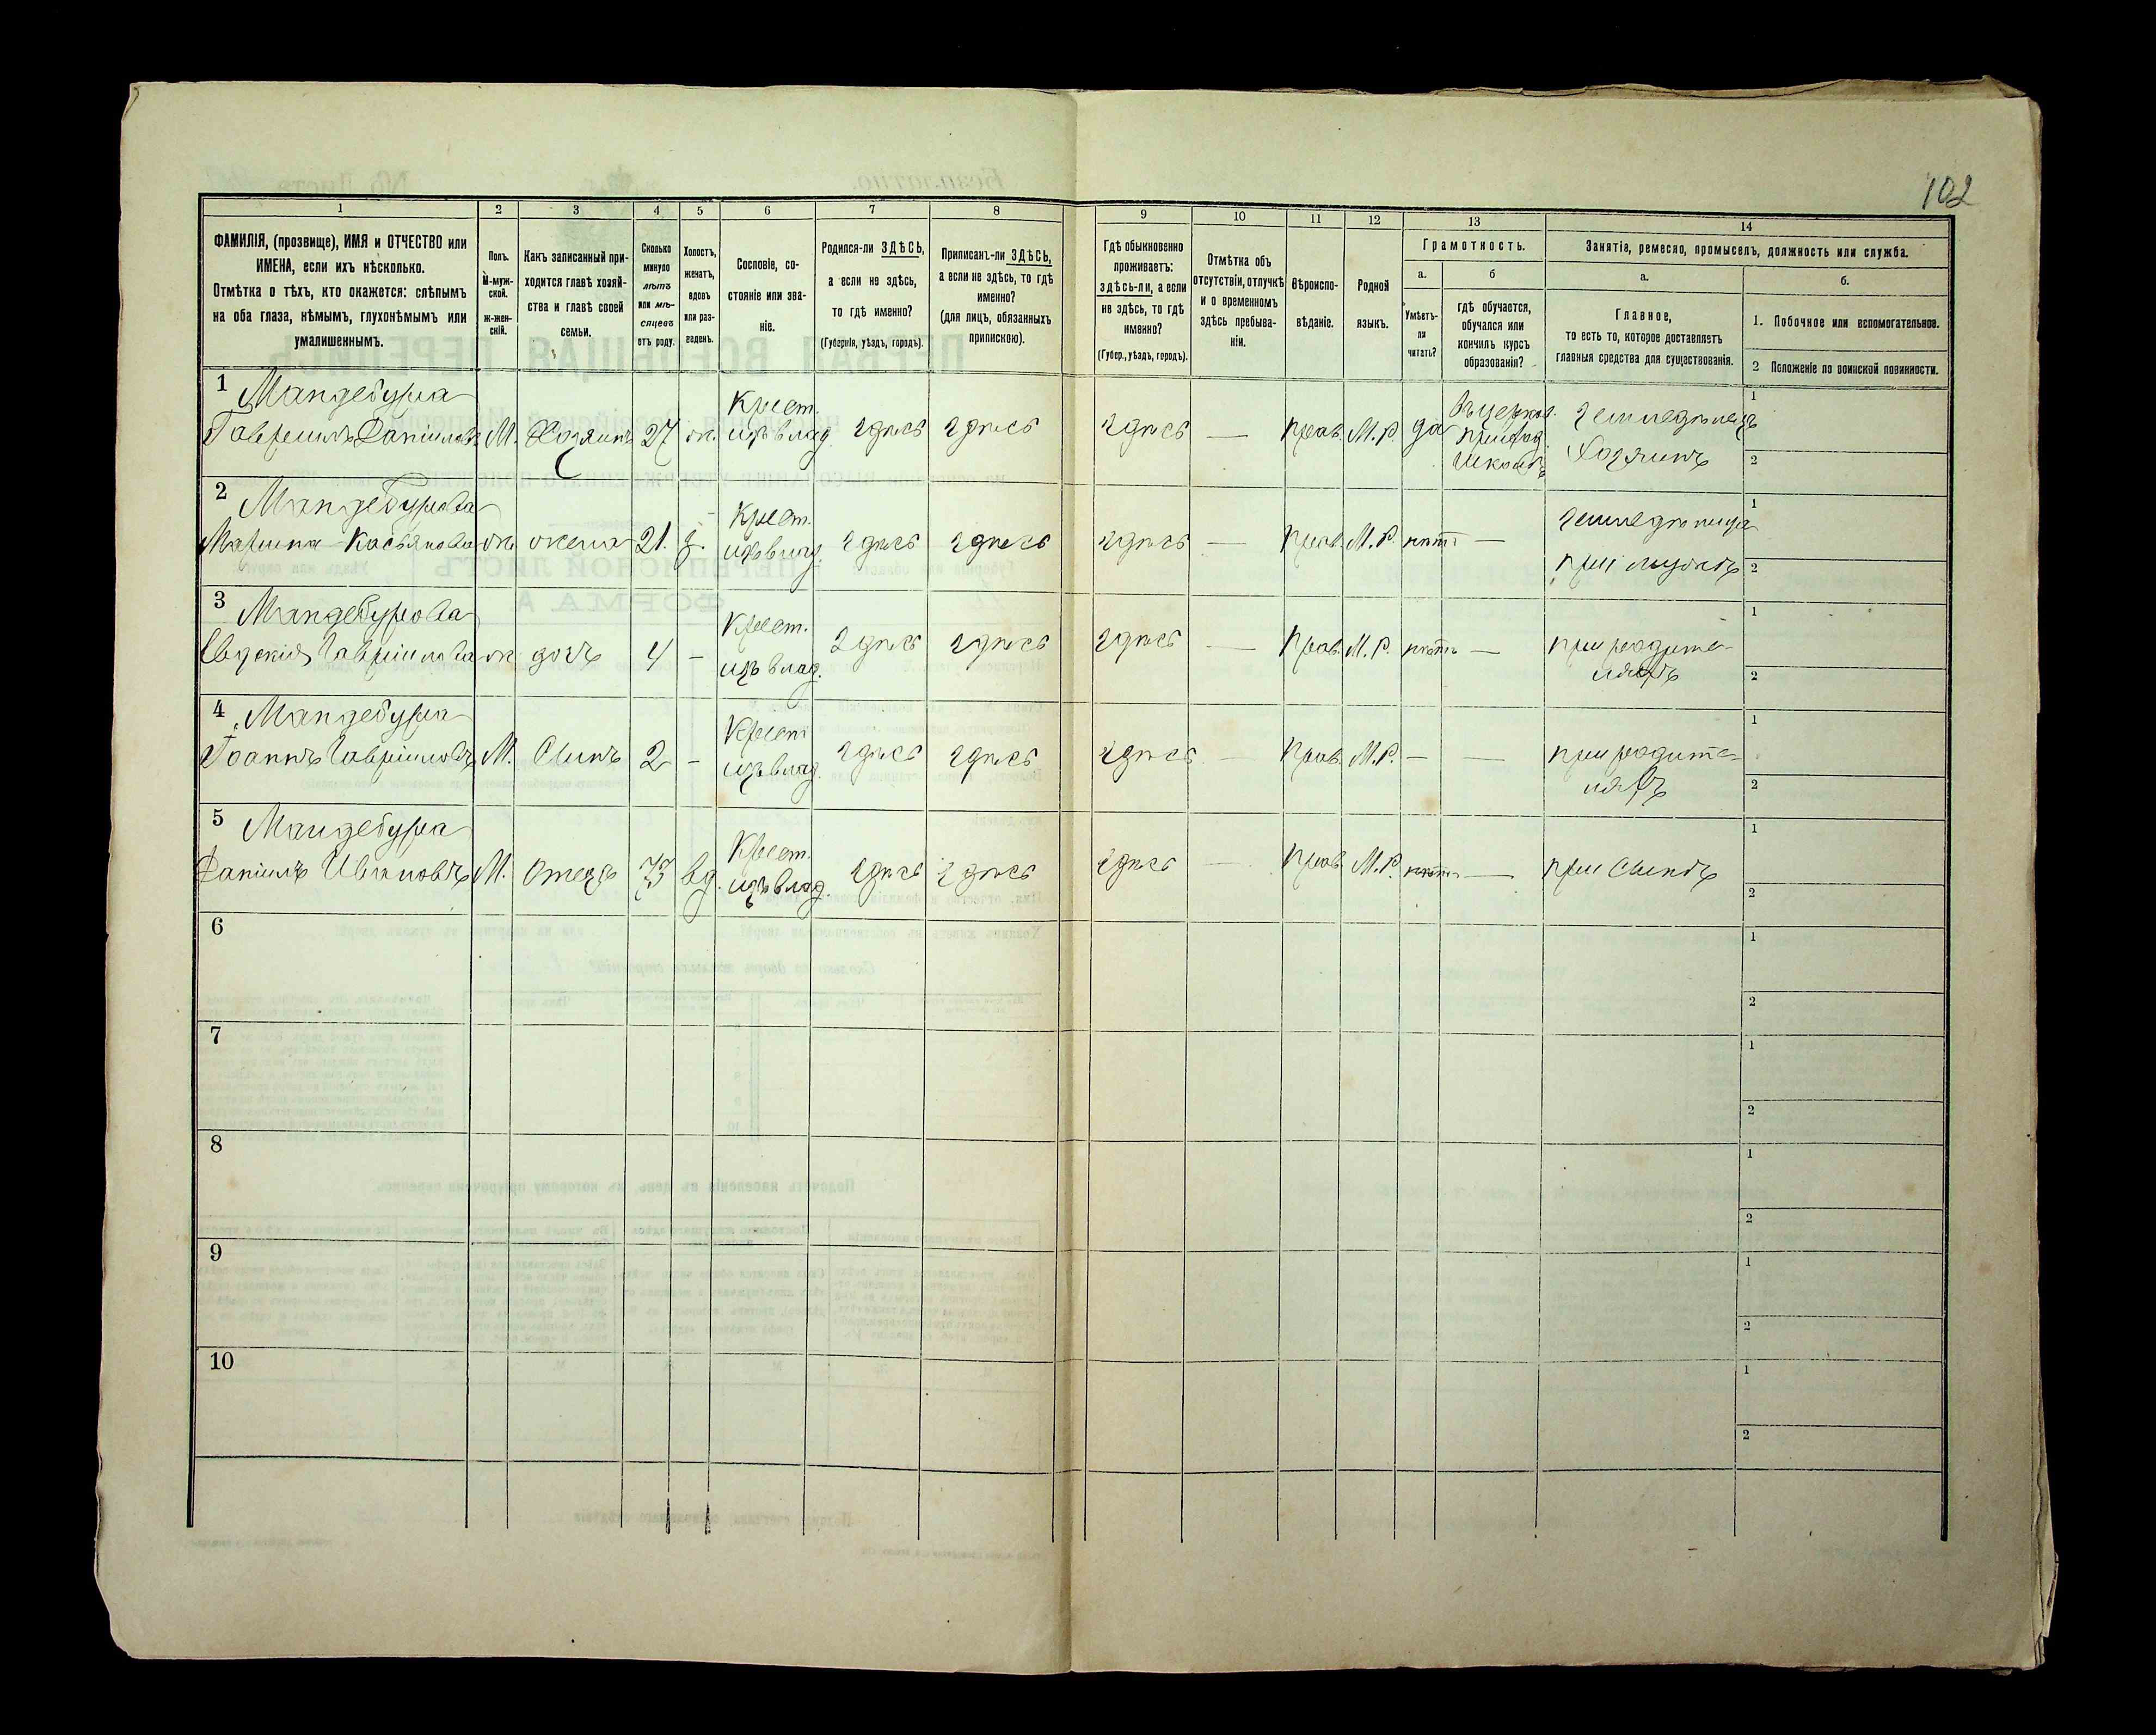 102
1
2
3
4
5
6
7
8
9
10
11
12
13
14
ФАМИЛІЯ, (прозвище), ИМЯ и ОТЧЕСТВО или
ИМЕНА, если ихъ нѣсколько.
Отмѣтка о тѣхъ, кто окажется: слѣпымъ
на оба глаза, нѣмымъ, глухонѣмымъ или
умалишеннымъ.
Полъ.
М-муж-
ской.
ж-жен-
скій.
Какъ записанный при-
ходится главѣ хозяй-
ства и главѣ своей
семьи.
Сколько
минуло
лѣтъ
или мѣ-
сяцевъ
отъ роду.
Холостъ,
женатъ,
вдовъ
или раз-
веденъ.
Сословіе, со-
стояніе или зва-
ніе.
Родился-ли ЗДѢСЬ,
а если не здѣсь,
то гдѣ именно?
(Губернія, уѣздъ, городъ).
Приписанъ-ли ЗДѢСЬ,
а если не здѣсь, то гдѣ
именно?
(для лицъ, обязанныхъ
припискою).
Гдѣ обыкновенно
проживаетъ:
здѣсь-ли, а если
не здѣсь, то гдѣ
именно?
(Губер., уѣздъ, городъ).
Отмѣтка объ
отсутствіи, отлучкѣ
и о временномъ
здѣсь пребыва-
ніи.
Вѣроиспо-
вѣданіе.
Родной
языкъ.
Грамотность.
а.
Умѣетъ-
ли
читать?
б
гдѣ обучается,
обучался или
кончилъ курсъ
образованія?
Занятіе, ремесло, промыселъ, должность или служба.
а.
Главное,
то есть то, которое доставляетъ
главныя средства для существованія.
б.
1. Побочное или вспомогательное.
2 Положеніе по воинской повинности.
1 Мандебура
Гавріилъ Даніиловъ М. Хозяинъ 27 ж. Крест. изъ влад. здѣсь здѣсь здѣсь — прав. М.Р. да
Въ церков.
приход.
школѣ
земледѣлецъ
Хозяинъ
1
2
2 Мандебурова
Марина Касьянова ж. жена 21. з. Крест. изъ влад. здѣсь здѣсь здѣсь — прав. М.Р. нѣтъ —
земледѣлица
при мужѣ
1
2
3 Мандебурова
Евдокія Гавріилова ж дочь 4 — Крест. изъ влад. здѣсь здѣсь здѣсь — прав. М.Р. нѣтъ —
при родите-
ляхъ
1
2
4 Мандебура
Іоаннъ Гавріиловъ М. Сынъ 2 — Крест изъ влад. здѣсь здѣсь здѣсь — прав. М.Р. — —
при родите-
ляхъ
1
2
5 Мандебура
Даніилъ Ивановъ М. Отецъ 73 вд. Крест. изъ влад. здѣсь здѣсь здѣсь — прав. М.Р. нѣтъ — при Сынѣ
1
2
6
1
2
7
1
2
8
1
2
9
1
2
10
1
2